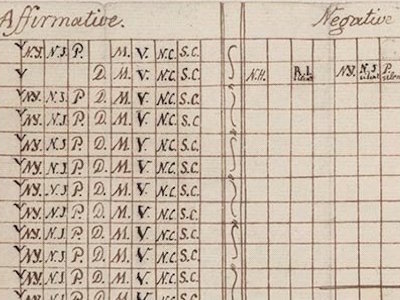 Affirmative. Negative
Y N.Y. N.J. P. M. V. N.C. S.C.
Y D. M. V. N.C. S.C. N.H. R.I. N.Y. N.J. P.
silent silent
Y N.Y. N.J. P D. M. V. N.C. S.C.
Y N.Y. N.J. P. D. M. V. N.C. S.C.
Y N.Y. N.J. P. D. M. V. N.C. S.C.
Y N.Y. N.J. P. D. M. V. N.C. S.C.
Y N.Y. N.J. P. D. M. V. N.C. S.C.
Y N.Y. N.J. P. D. M. V. N.C. S.C.
Y N.Y. N.J. P. D. M. V. N.C. S.C.
Y N.Y. N.J. P. D. M. V. N.C. S.C.
Y N.Y. N.J. P. D. M. V. N.C. S.C.